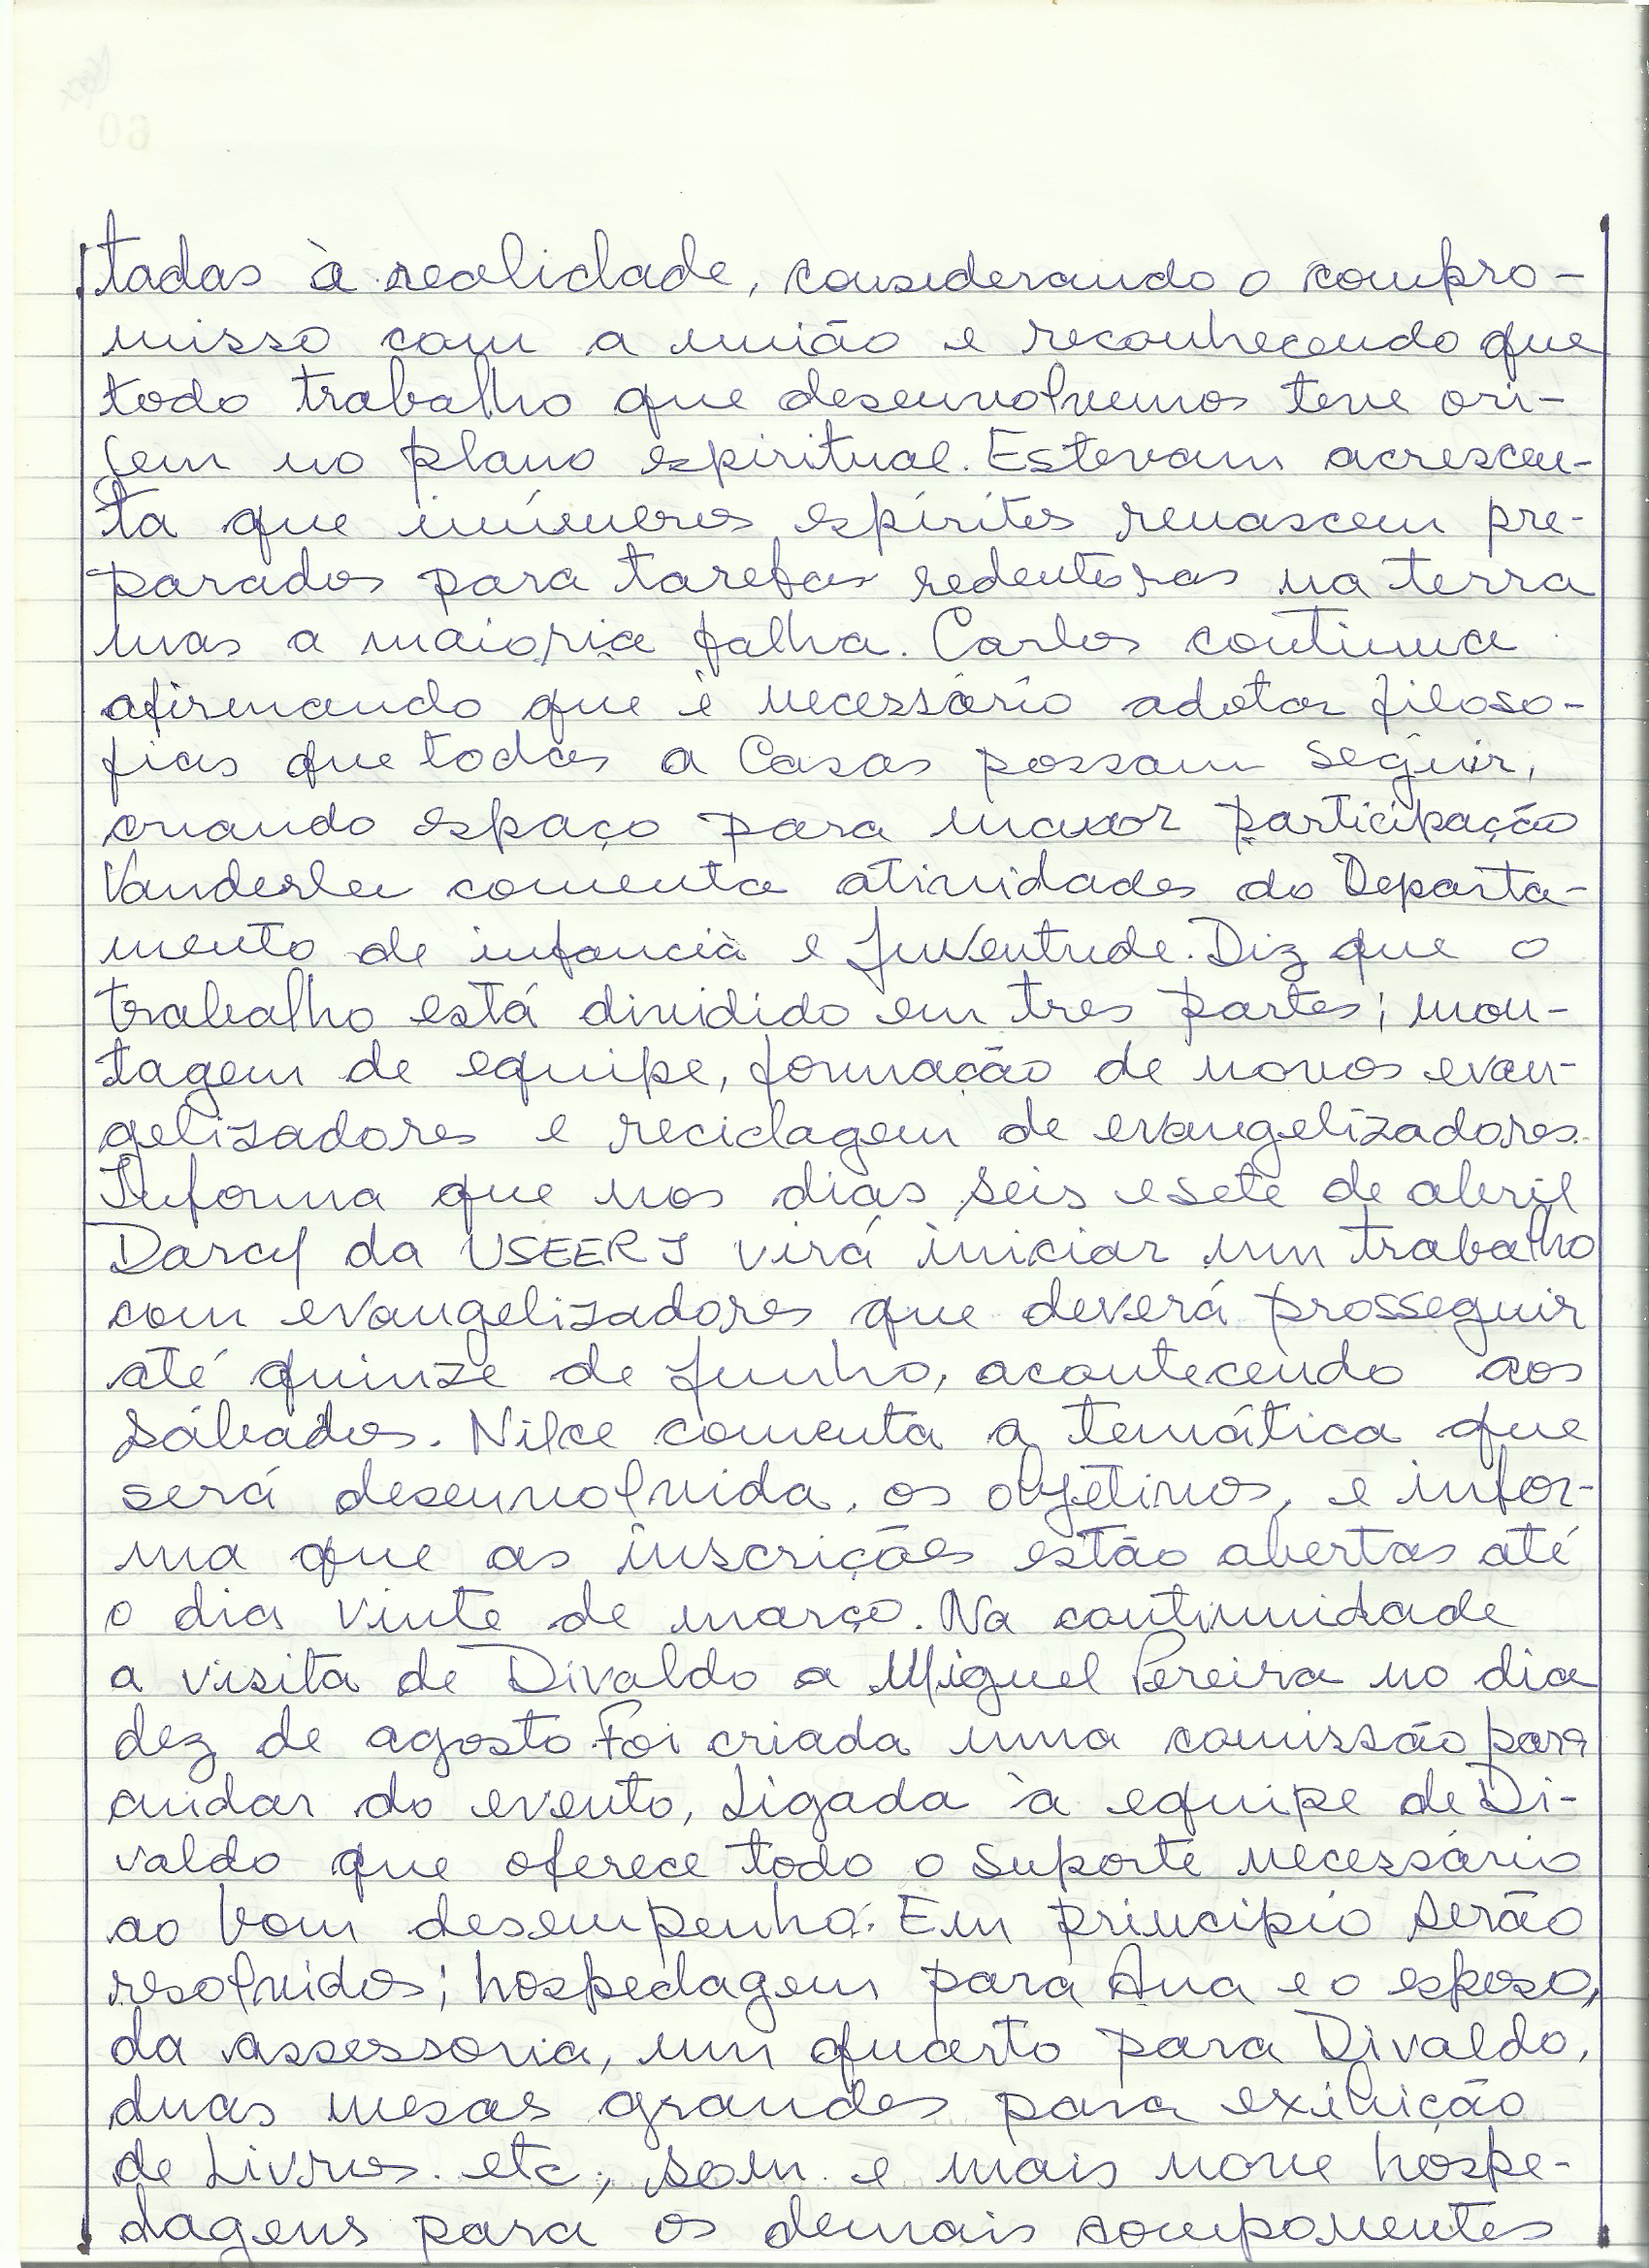 tadas à realidade, considerando o compro-
misso com a união e reconhecendo que
todo trabalho que desenvolvemos teve ori-
gem no plano espiritual. Estevam acrescen-
ta que inúmeros espíritos renascem pre-
parados para tarefas redentoras na terra
mas a maioria falha. Carlos continua
afirmando que é necessário adotar filoso-
fias que todas a Casas possam seguir,
criando espaço para maior participação
Vanderlei comenta atividades do Departa-
mento de infancia e Juventude. Diz que o
trabalho está dividido em tres partes; mon-
tagem de equipe, formação de novos evan-
gelizadores e reciclagem de evangelizadores.
Informa que nos dias seis e sete de abril
Darcy da USEERJ virá iniciar um trabalho
com evangelizadores que deverá prosseguir
até quinze de Junho, acontecendo aos
sábados. Nilce comenta a temática que
será desenvolvida, os objetivos, e infor-
ma que as inscrições estão abertas até
o dia vinte de março. Na continuidade
a visita de Divaldo a Miguel Pereira no dia
dez de agosto Foi criada uma comissão para
cuidar do evento, Ligada à equipe de Di-
valdo que oferece todo o suporte necessário
ao bom desempenho. Em principio serão
resolvidos; hospedagem para Ana e o esposo,
da assessoria, um quarto para Divaldo,
duas mesas grandes para exibição
de Livros. etc; som e mais nove hospe-
dagens para os demais componentes